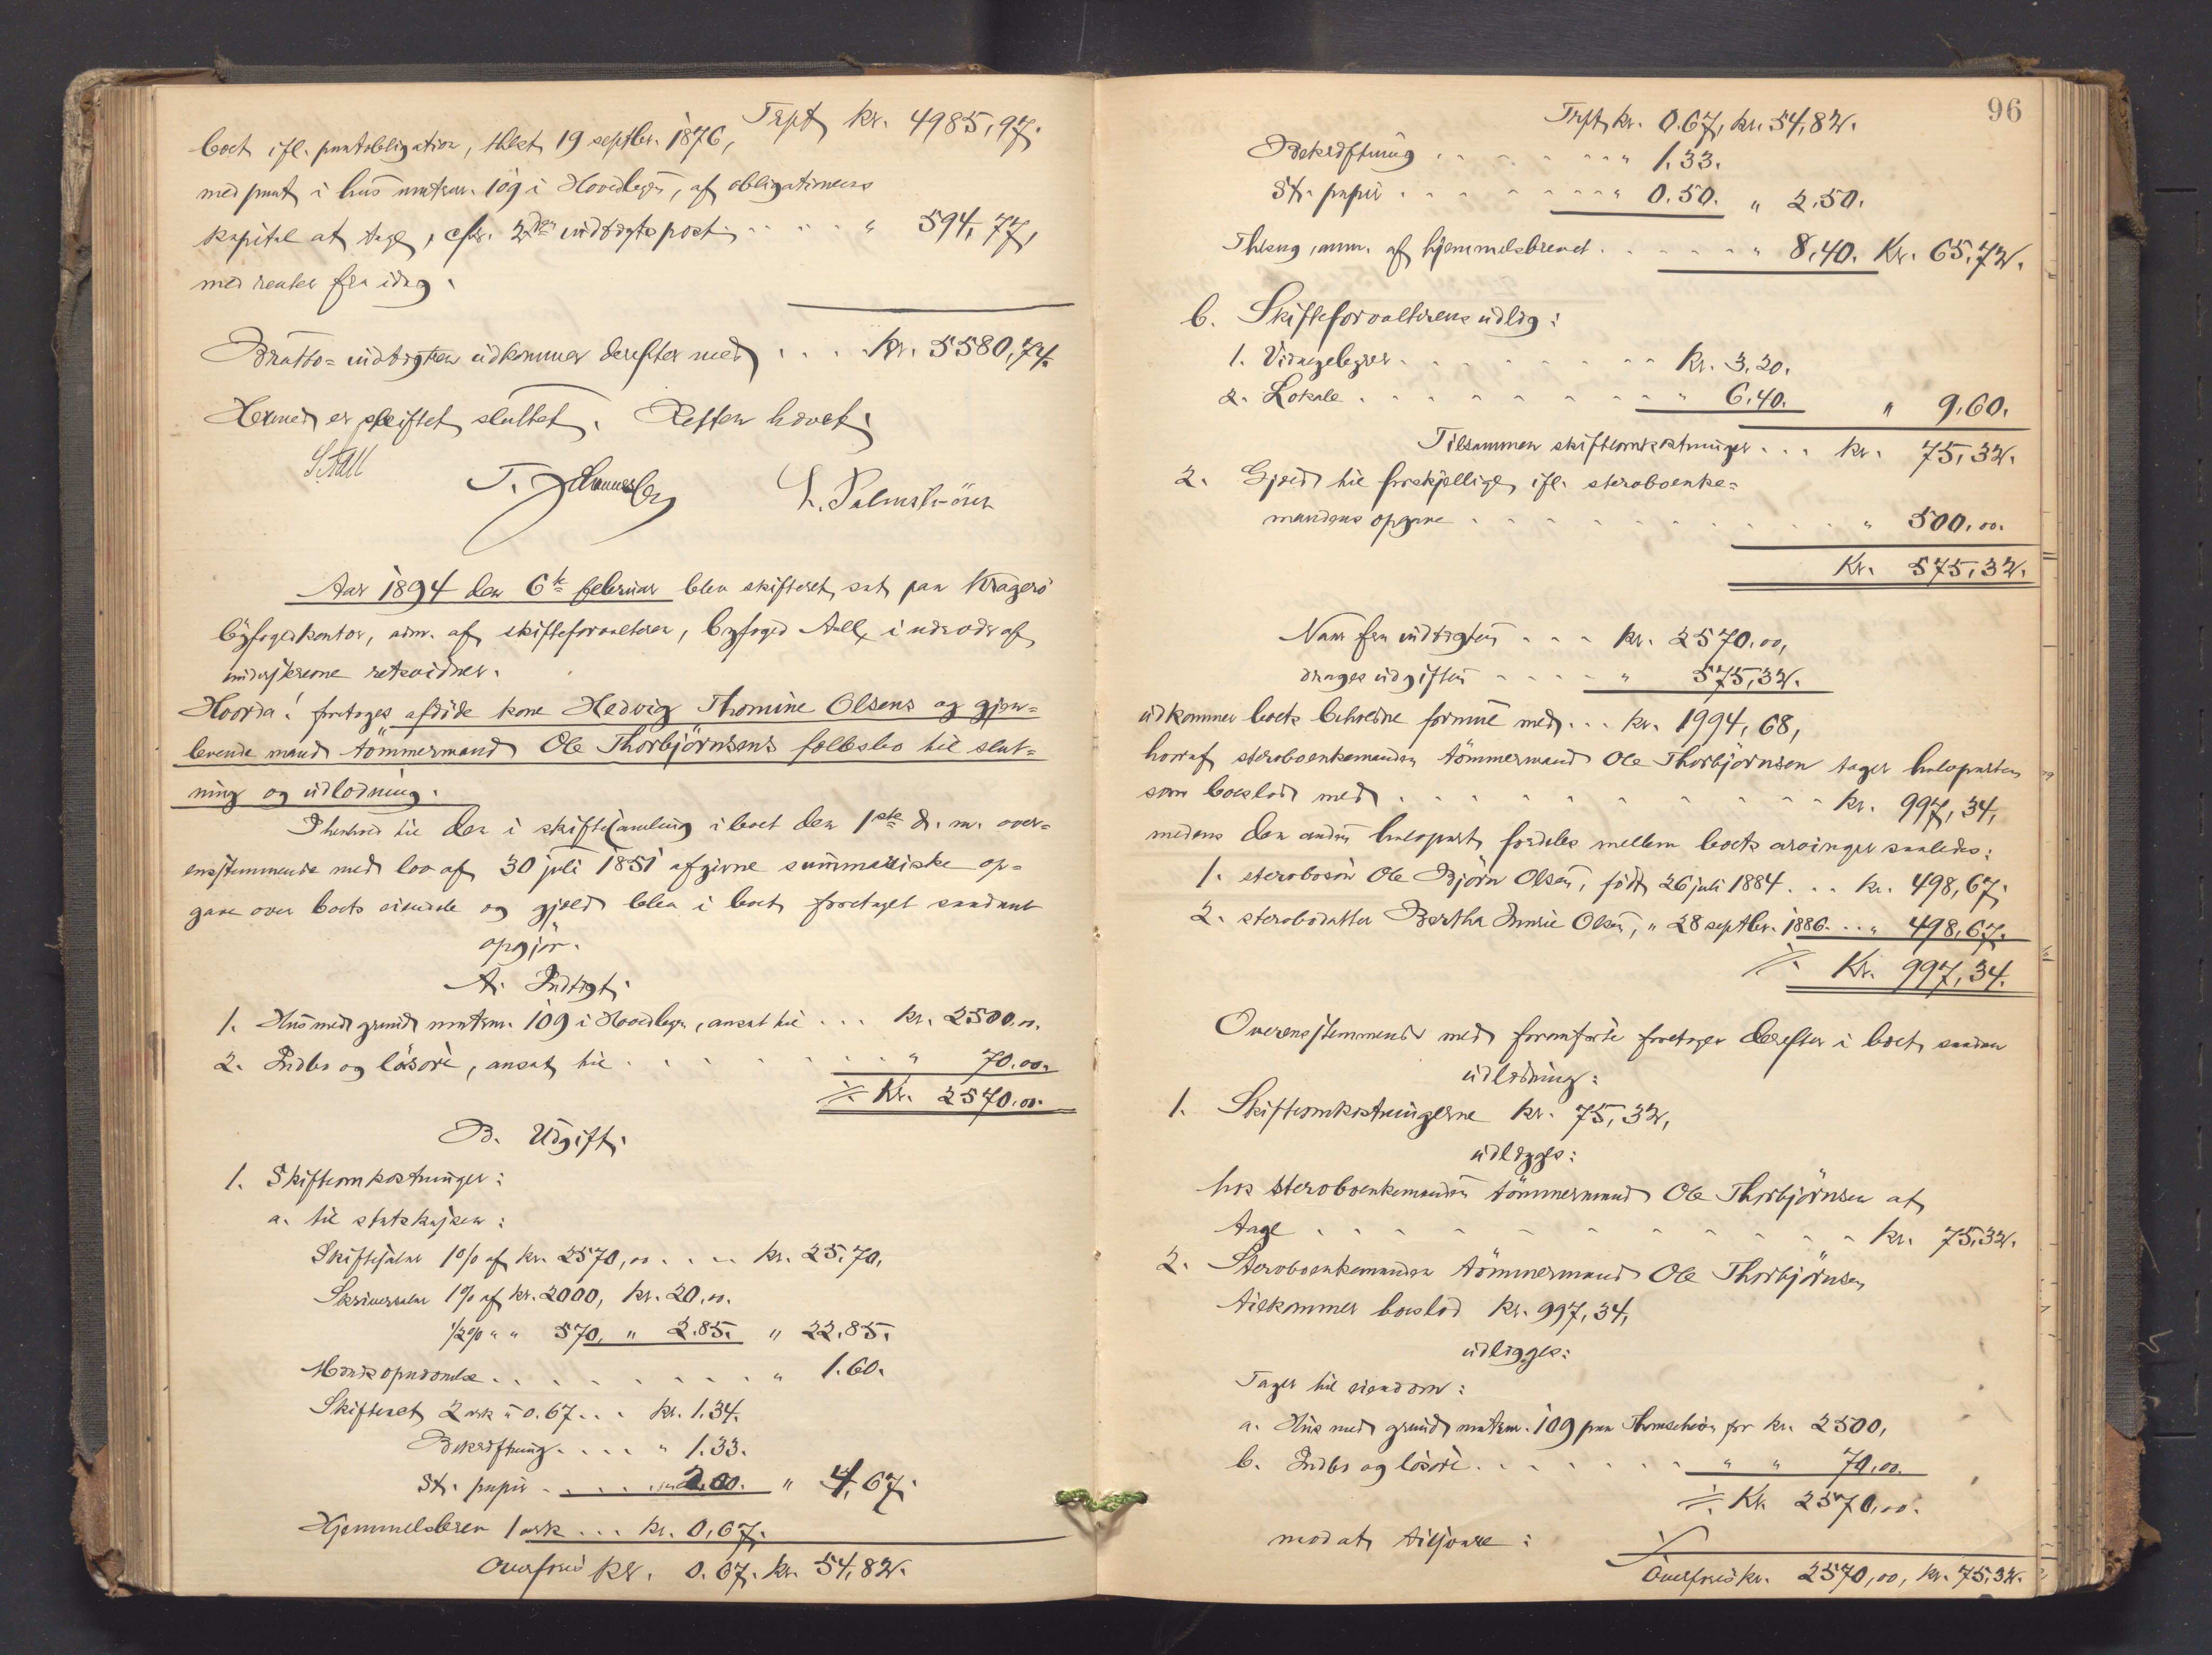 Trpt kr. 4985,97.
boet ifl. pantobligation, thlst 19 septbr. 1876,
med pant i hus mtrnr. 109 i Hovedlegen, af obligationens
kapital at tage, cfr. 2den indtægtspost . . . . " 594,77,
med renter fra idag.
Brutto-indtægten udkommer derefter med . . . . Kr. 5580,74.
Hermed er skiftet sluttet. Retten hævet.
S. Aall
L. Palmström
Aar 1894 den 6te februar blev skifteret sat paa Kragerö
byfogedkontor, adm. af skifteforvalteren, byfoged Aall, i nærvær af
underskrevne retsvidner.
Hvorda! foretoges afdöde kone Hedvig Thomine Olsens og gjen-
levende mand tömmermand Ole Thorbjörnsens fællesbo til slut-
ning og udlodning.
I henhold til den i skiftesamling i boet den 1ste d. m. over-
ensstemmende med lov af 30 juli 1851 afgivne summariske op-
gave over boets eiendele og gjæld blev i boet foretaget saadant
opgjör.
A. Indtægt.
1. Hus med grund mtrnr. 109 i Hovedlegen, ansat til . . . kr. 2500.00.
2. Indbo og lösöre, ansat til . . . . . . . " 70.00.
Kr. 2570.00.
B. Udgift.
1. Skifteomkostninger:
a. til statskassen:
Skiftesalær 1% af kr. 2570,00 . . . kr. 25,70.
Skriversalær 1% af kr. 2000, kr. 20,00.
1/2% " " 570, " 2.85. " 22.85.
. . . . . . . . " 1.60.
Skifteret 2 ark à 0.67 . . . kr. 1.34.
Bekræftning . . . . " 1.33.
St. papir . . . . . 2.00. " 4,67.
Hjemmelsbrev 1 ark . . . kr. 0,67.
Overföres kr. 0.67. kr. 54,82.
96
Trpt kr. 0.67, kr. 54,82.
Bekræftning . . . . . . . " 1.33.
St. papir . . . . . . . . " 0.50. " 2.50.
Thlsng, anm. af hjemmelsbrevet . . . . . . " 8,40. Kr. 65,72.
b. Skifteforvalterens udlæg:
1. Vidnegebyrer . . . . . . . . . kr. 3.20.
2. Lokale . . . . . . . . . " 6.40. " 9.60.
Tilsammen skifteomkostninger . . . kr. 75,32.
2. Gjæld til forskjellige, ifl. sterboenke-
mandens opgave . . . . . . . . . . . " 500.00.
Kr. 575,32.
Naar fra indtægten . . . kr. 2570.00,
drages udgiften . . . . " 575,32.
udkommer boets beholdne formue med . . . kr. 1994,68,
hvoraf sterboenkemanden tömmermand Ole Thorbjörnsen tager halvparten
som boeslod med . . . . . . . . . . . . kr. 997,34,
medens den anden halvpart fordeles mellem boets arvinger saaledes:
1. sterbosön Ole Björn Olsen, född 26 juli 1884 . . . kr. 498,67.
2. sterbodatter Bertha Olsen, " 28 septbr. 1886 . . " 498,67.
Kr. 997,34.
Overensstemmende med foranförte foretoges derefter i boet saadan
udlodning:
1. Skifteomkostningerne kr. 75,32,
udlægges:
hos sterboenkemanden tömmermand Ole Thorbjörnsen at
tage . . . . . . . . . . . . kr. 75,32.
2. Sterboenkemanden tömmermand Ole Thorbjörnsen
tilkommer boeslod kr. 997,34,
udlægges:
Tager til eiendom:
a. Hus med grund mtrnr. 109 paa for kr. 2500,
b. Indbo og lösöre . . . . . . " " 70,00.
Kr. 2570,00.
modat tilsvare:
Overföres kr. 2570,00, kr. 75,32.